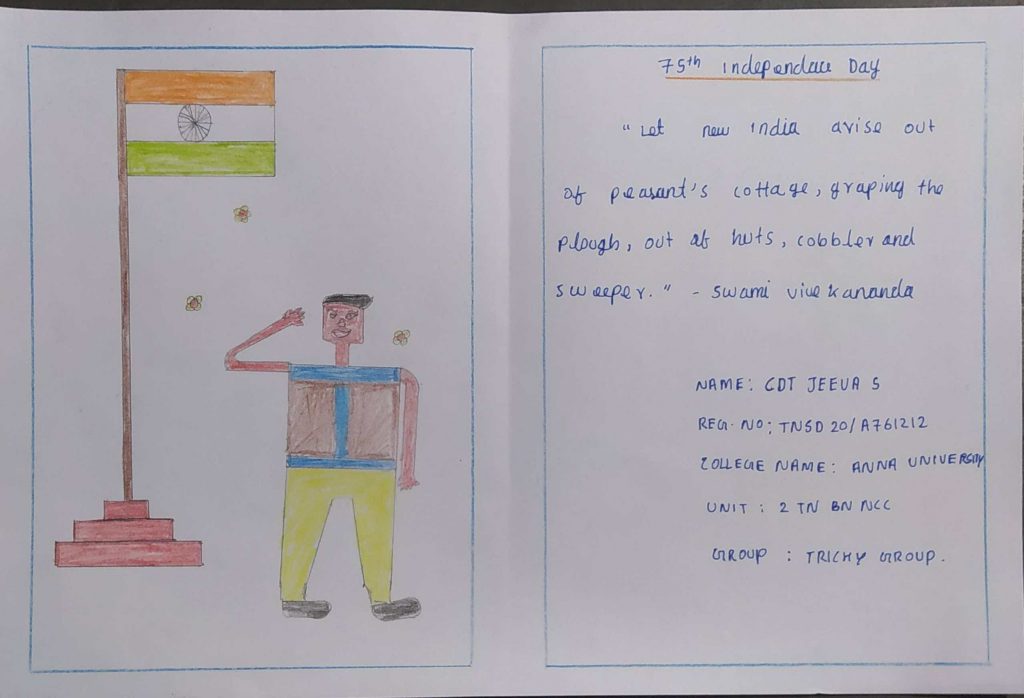 75th Independace Day
"Let new India arise out
of peasant's cottage, graping the
plough, out of huts, cobbler and
sweeper." - Swami vivekananda
NAME: CDT JEEVA S
REG. NO: TNSD 20/A761212
COLLEGE NAME: ANNA UNIVERSITY
UNIT : 2 TN BN NCC
GROUP : TRICHY GROUP.